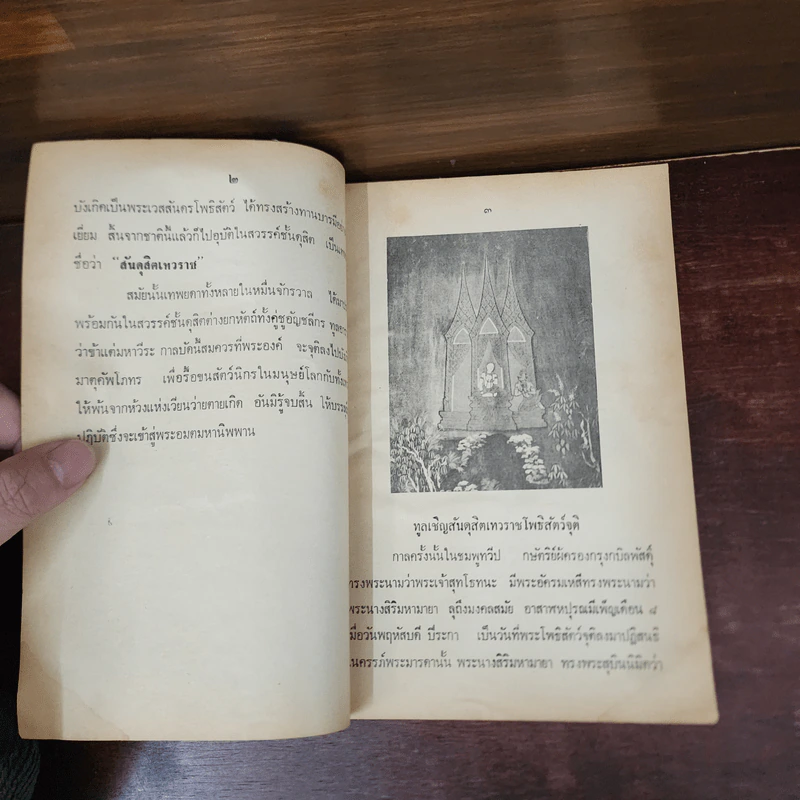 ๒
บังเกิดเป็นพระเวสสันดรโพธิสัตว์ ได้ทรงสร้างทานบารมี
เยี่ยม สิ้นจากชาตินี้แล้วก็ไปอุบัติในสวรรค์ชั้นดุสิต เป็น
ชื่อว่า "สันดุสิตเทวราช"
สมัยนั้นเทพยดาทั้งหลายในหมื่นจักรวาล ได้มา
พร้อมกันในสวรรค์ชั้นดุสิตต่างยกหัตถ์ทั้งคู่ชูอัญชลีกร ทูล
ว่าข้าแต่มหาวีระ กาลบัดนี้สมควรที่พระองค์ จะจุติลงไป
มาตุคัพโภทร เพื่อรื้อขนสัตว์นิกรในมนุษย์โลกกับทั้ง
ให้พ้นจากห้วงแห่งเวียนว่ายตายเกิด อันมิรู้จบสิ้น ให้บรรลุ
ปฏิบัติซึ่งจะเข้าสู่พระอมตมหานิพพาน
๓
ทูลเชิญสันดุสิตเทวราชโพธิสัตว์จุติ
กาลครั้งนั้นในชมพูทวีป กษัตริย์ผู้ครองกรุงกบิลพัสดุ์
ทรงพระนามว่าพระเจ้าสุทโธทนะ มีพระอัครมเหสีทรงพระนามว่า
พระนางสิริมหามายา ลุถึงมงคลสมัย อาสาฬหปุรณมีเพ็ญเดือน ๘
เมื่อวันพฤหัสบดี ปีระกา เป็นวันที่พระโพธิสัตว์จุติลงมาปฏิสนธิ
ในครรภ์พระมารดานั้น พระนางสิริมหามายา ทรงพระสุบินนิมิตว่า